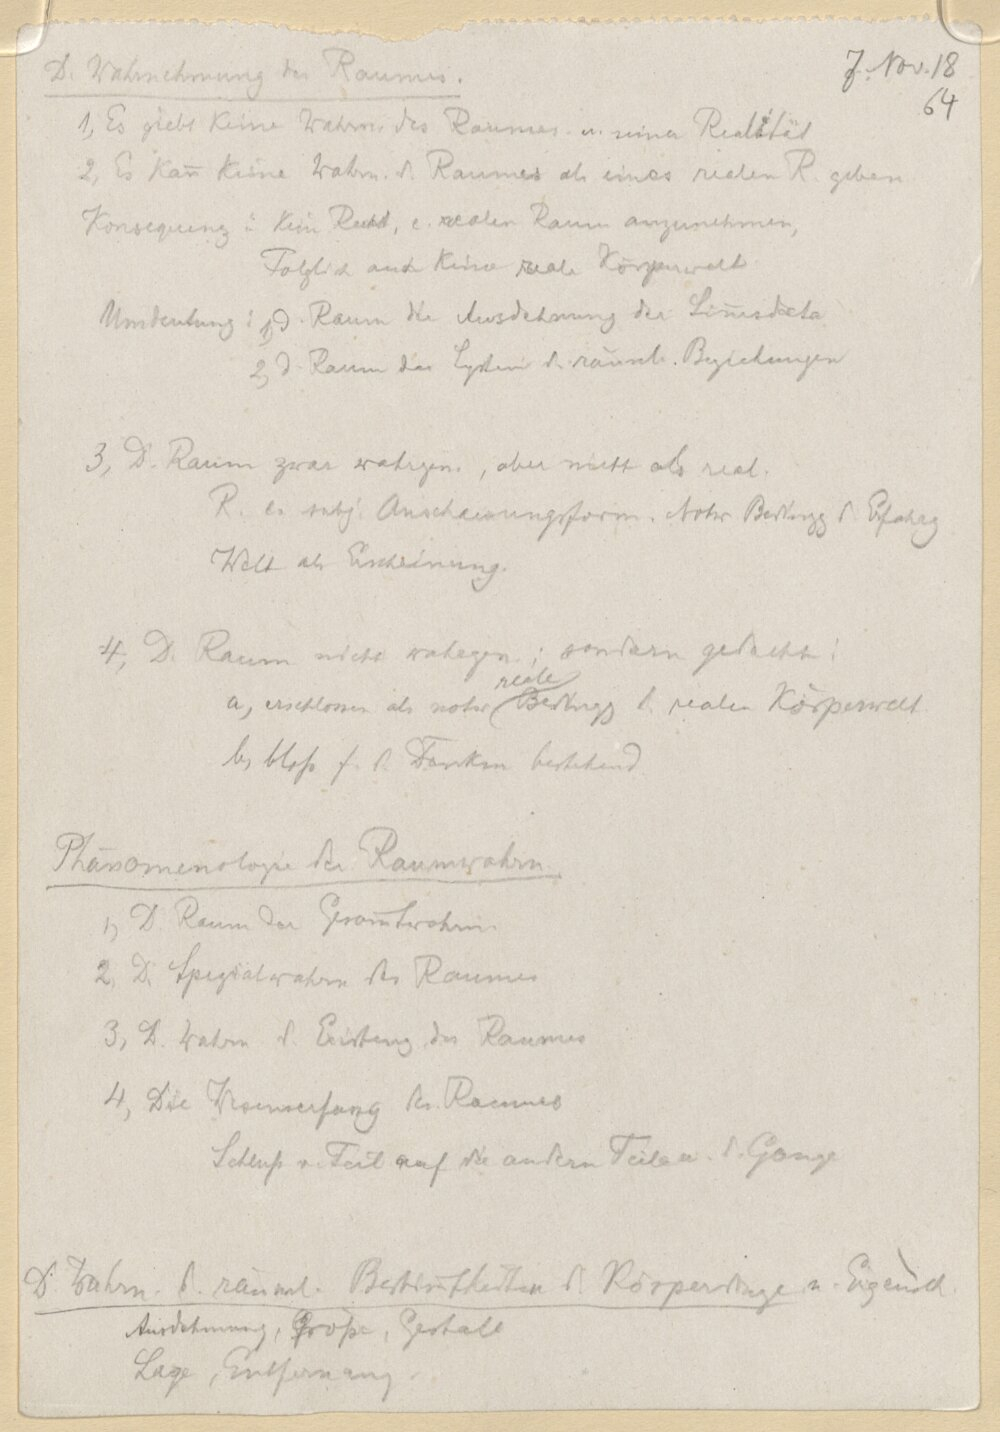 D. Wahrnehmung des Raumes.
7. Nov. 18
64
1, Es giebt keine Wahrn. des Raumes u. seiner Realität
2, Es kan̅ keine Wahrn. d. Raumes als eines realen R. geben
Konsequenz: kein Recht, e. realen Raum anzunehmen,
Folglich auch keine reale Körperwelt
Umdeutung: 1, d. Raum die Ausdehnung der Sin̅esdata
2, d. Raum das System d. räuml. Beziehungen
3, D. Raum zwar wahrgen., aber nicht als real.
R. es subj. Anschauungsform. Notw Bedingg d. Erfahrg
Welt als Erscheinung.
4, D. Raum nicht wahrgen.; sondern gedacht:
reale
a, erschlossen als notw Bedingg d. realen Körperwelt
b, bloß f. d. Denken bestehend
Phänomenologie der Raumwahrn.
1, D. Raum der Gesam̅twahrn.
2, D. Spezialwahrn des Raumes
3, D. Wahrn d. Existenz des Raumes
4, Die Wesenserfassg des Raumes
Schluß v. Teil auf die andern Teile u. d. Ganze
D. Wahrn. d. räuml. Bestim̅theiten d. Körperdinge u. Eigensch.
Ausdehnung, Größe, Gestalt
Lage, Entfernung.